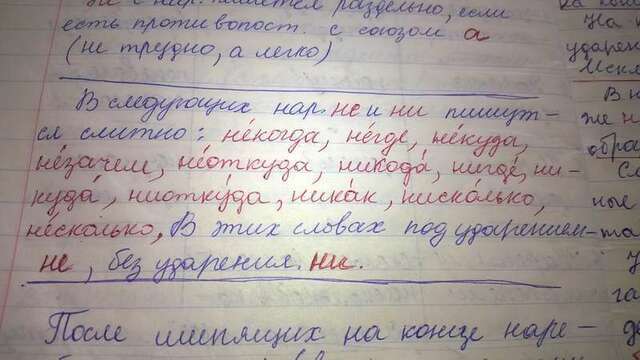 не с нар. пишется раздельно, если
есть противопост. с союзом а
(не трудно, а легко)
В следующих нар. не и ни пишут-
ся слитно: не́когда, не́где, не́куда,
не́зачем, не́откуда, никода́, нигде́, ни-
куда́, ниотку́да, ника́к, ниско́лько,
не́сколько, В этих словах под ударением-
не, без ударения. ни.
После шипящих на конце наре-
На
ударен
Искл
В н
же н
обра
Сл
ные
та
У
га
де